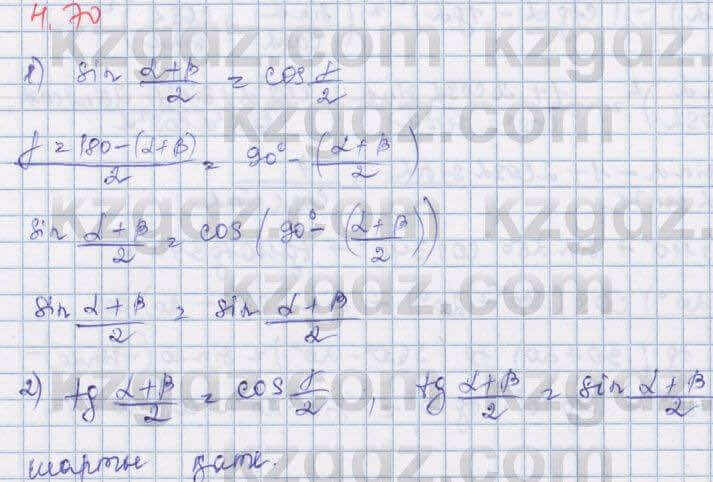 4.70
1) sin (α+β)/2 = cos γ/2
γ = 180-(α+β)/2 = 90° - ((α+β)/2)
sin (α+β)/2 = cos (90° - ((α+β)/2))
sin (α+β)/2 = sin (α+β)/2
2) tg (α+β)/2 = cos γ/2, tg (α+β)/2 = sin (α+β)/2
шарты қате.
kzgdz.com kzgdz.com
kzgdz.com
kzgdz.com kzgdz.com
kzgdz.com
kzgdz.com kzgdz.com
kzgdz.com